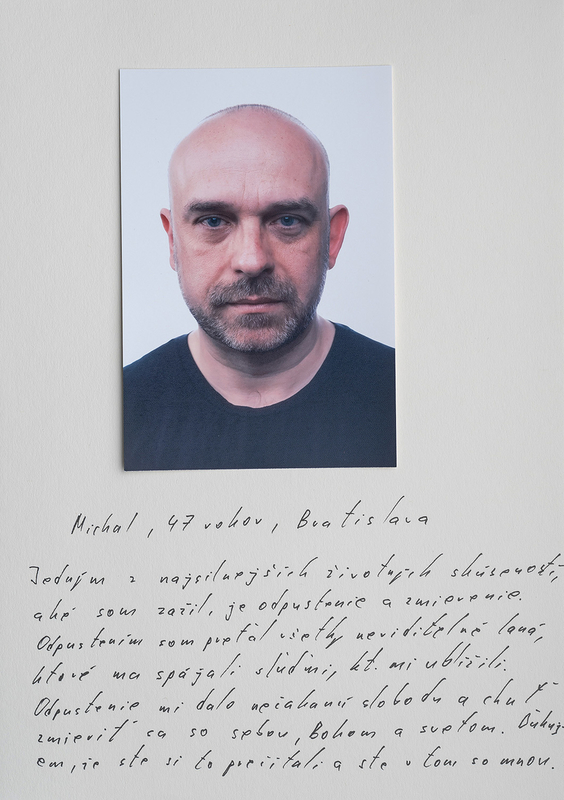 Michal, 47 rokov, Bratislava
Jedným z najsilnejších životných skúseností,
aké som zažil, je odpustenie a zmierenie.
Odpustením som preťal všetky neviditeľné laná,
ktoré ma spájali s ľuďmi, kt. mi ublížili.
Odpustenie mi dalo nečakanú slobodu a chuť
zmieriť sa so sebou, Bohom a svetom. Ďakuj-
em, že ste si to prečítali a ste v tom so mnou.